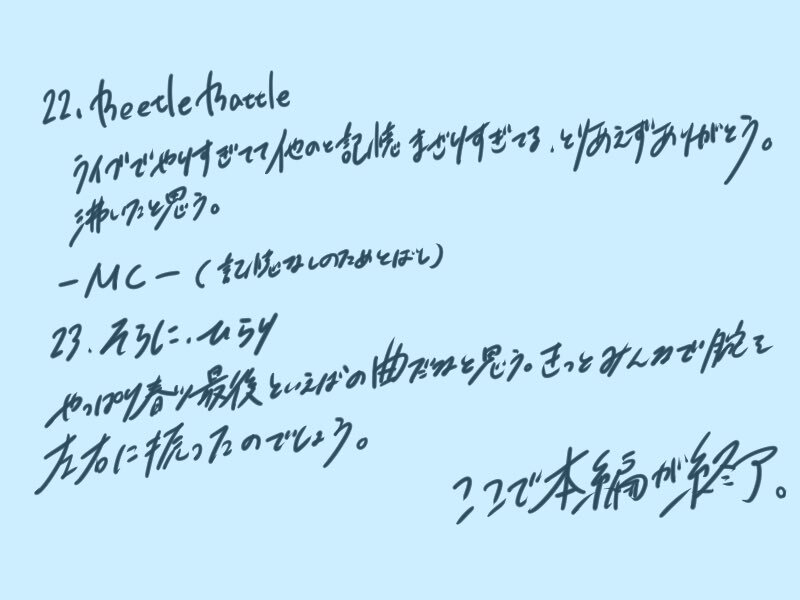 22. Beetle Battle
ライブでやりすぎてて他のと記憶まざりすぎてる、とりあえずありがとう。
沸いたと思う。
-MC-(記憶なしのためとばし)
23. そらに、ひらり
やっぱり春り最後といえばの曲だねと思う。きっとみんなで腕を
左右に振ったのでしょう。
ここで本編が終了。